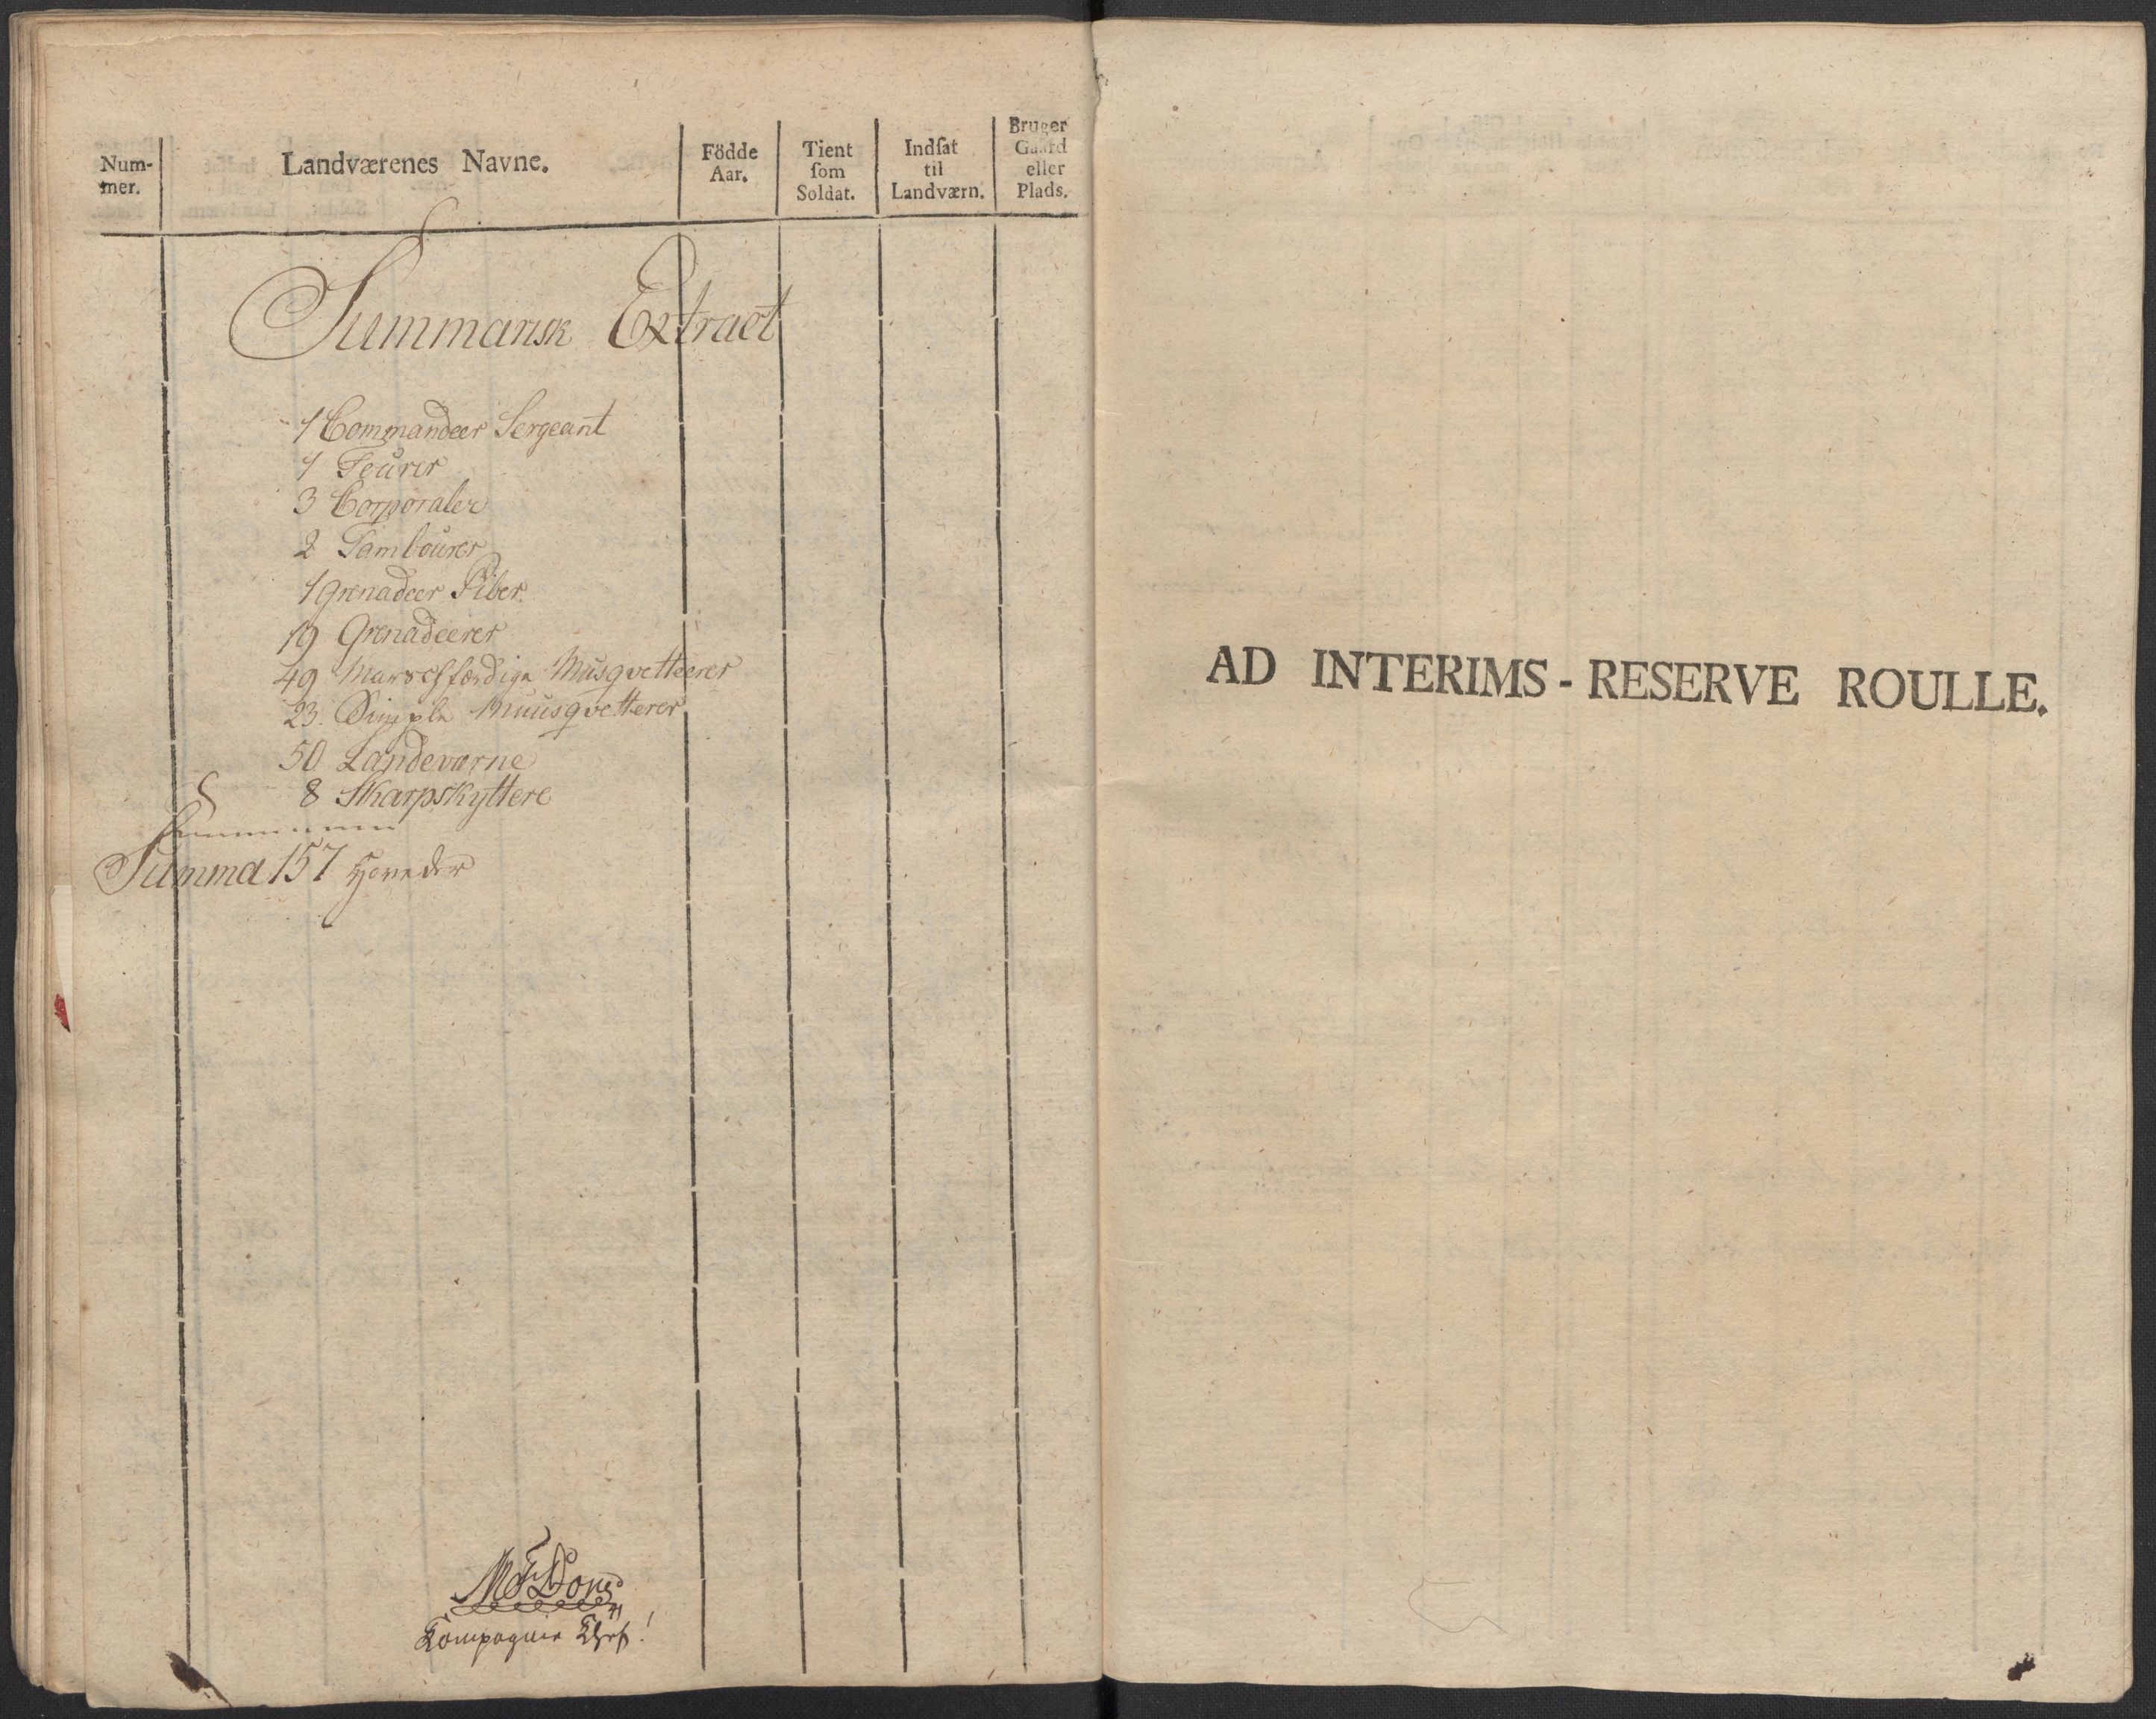 Num-
mer.
Landværenes Navne.
Födde
Aar.
Tient
ſom
Soldat.
Indſat
til
Landværn.
Bruger
Gaard
eller
Plads.
Summarisk Extract
1 Commandeer Sergeant
1 Feurer
3 Corporaler
2 Tambourer
1 Grenadeer Piber.
19 Grenadeerer
49 Marschfærdige Musqvetteerer
23. Simple Muusqvetterer
50 Landeværne
8 Skarpskyttere
Summa 157 Hoveder
Compagnie Chef!
AD INTERIMS - RESERVE ROULLE.